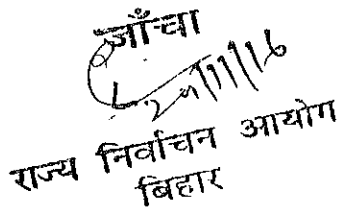 जाँचा
राज्य निर्वाचन आयोग
बिहार